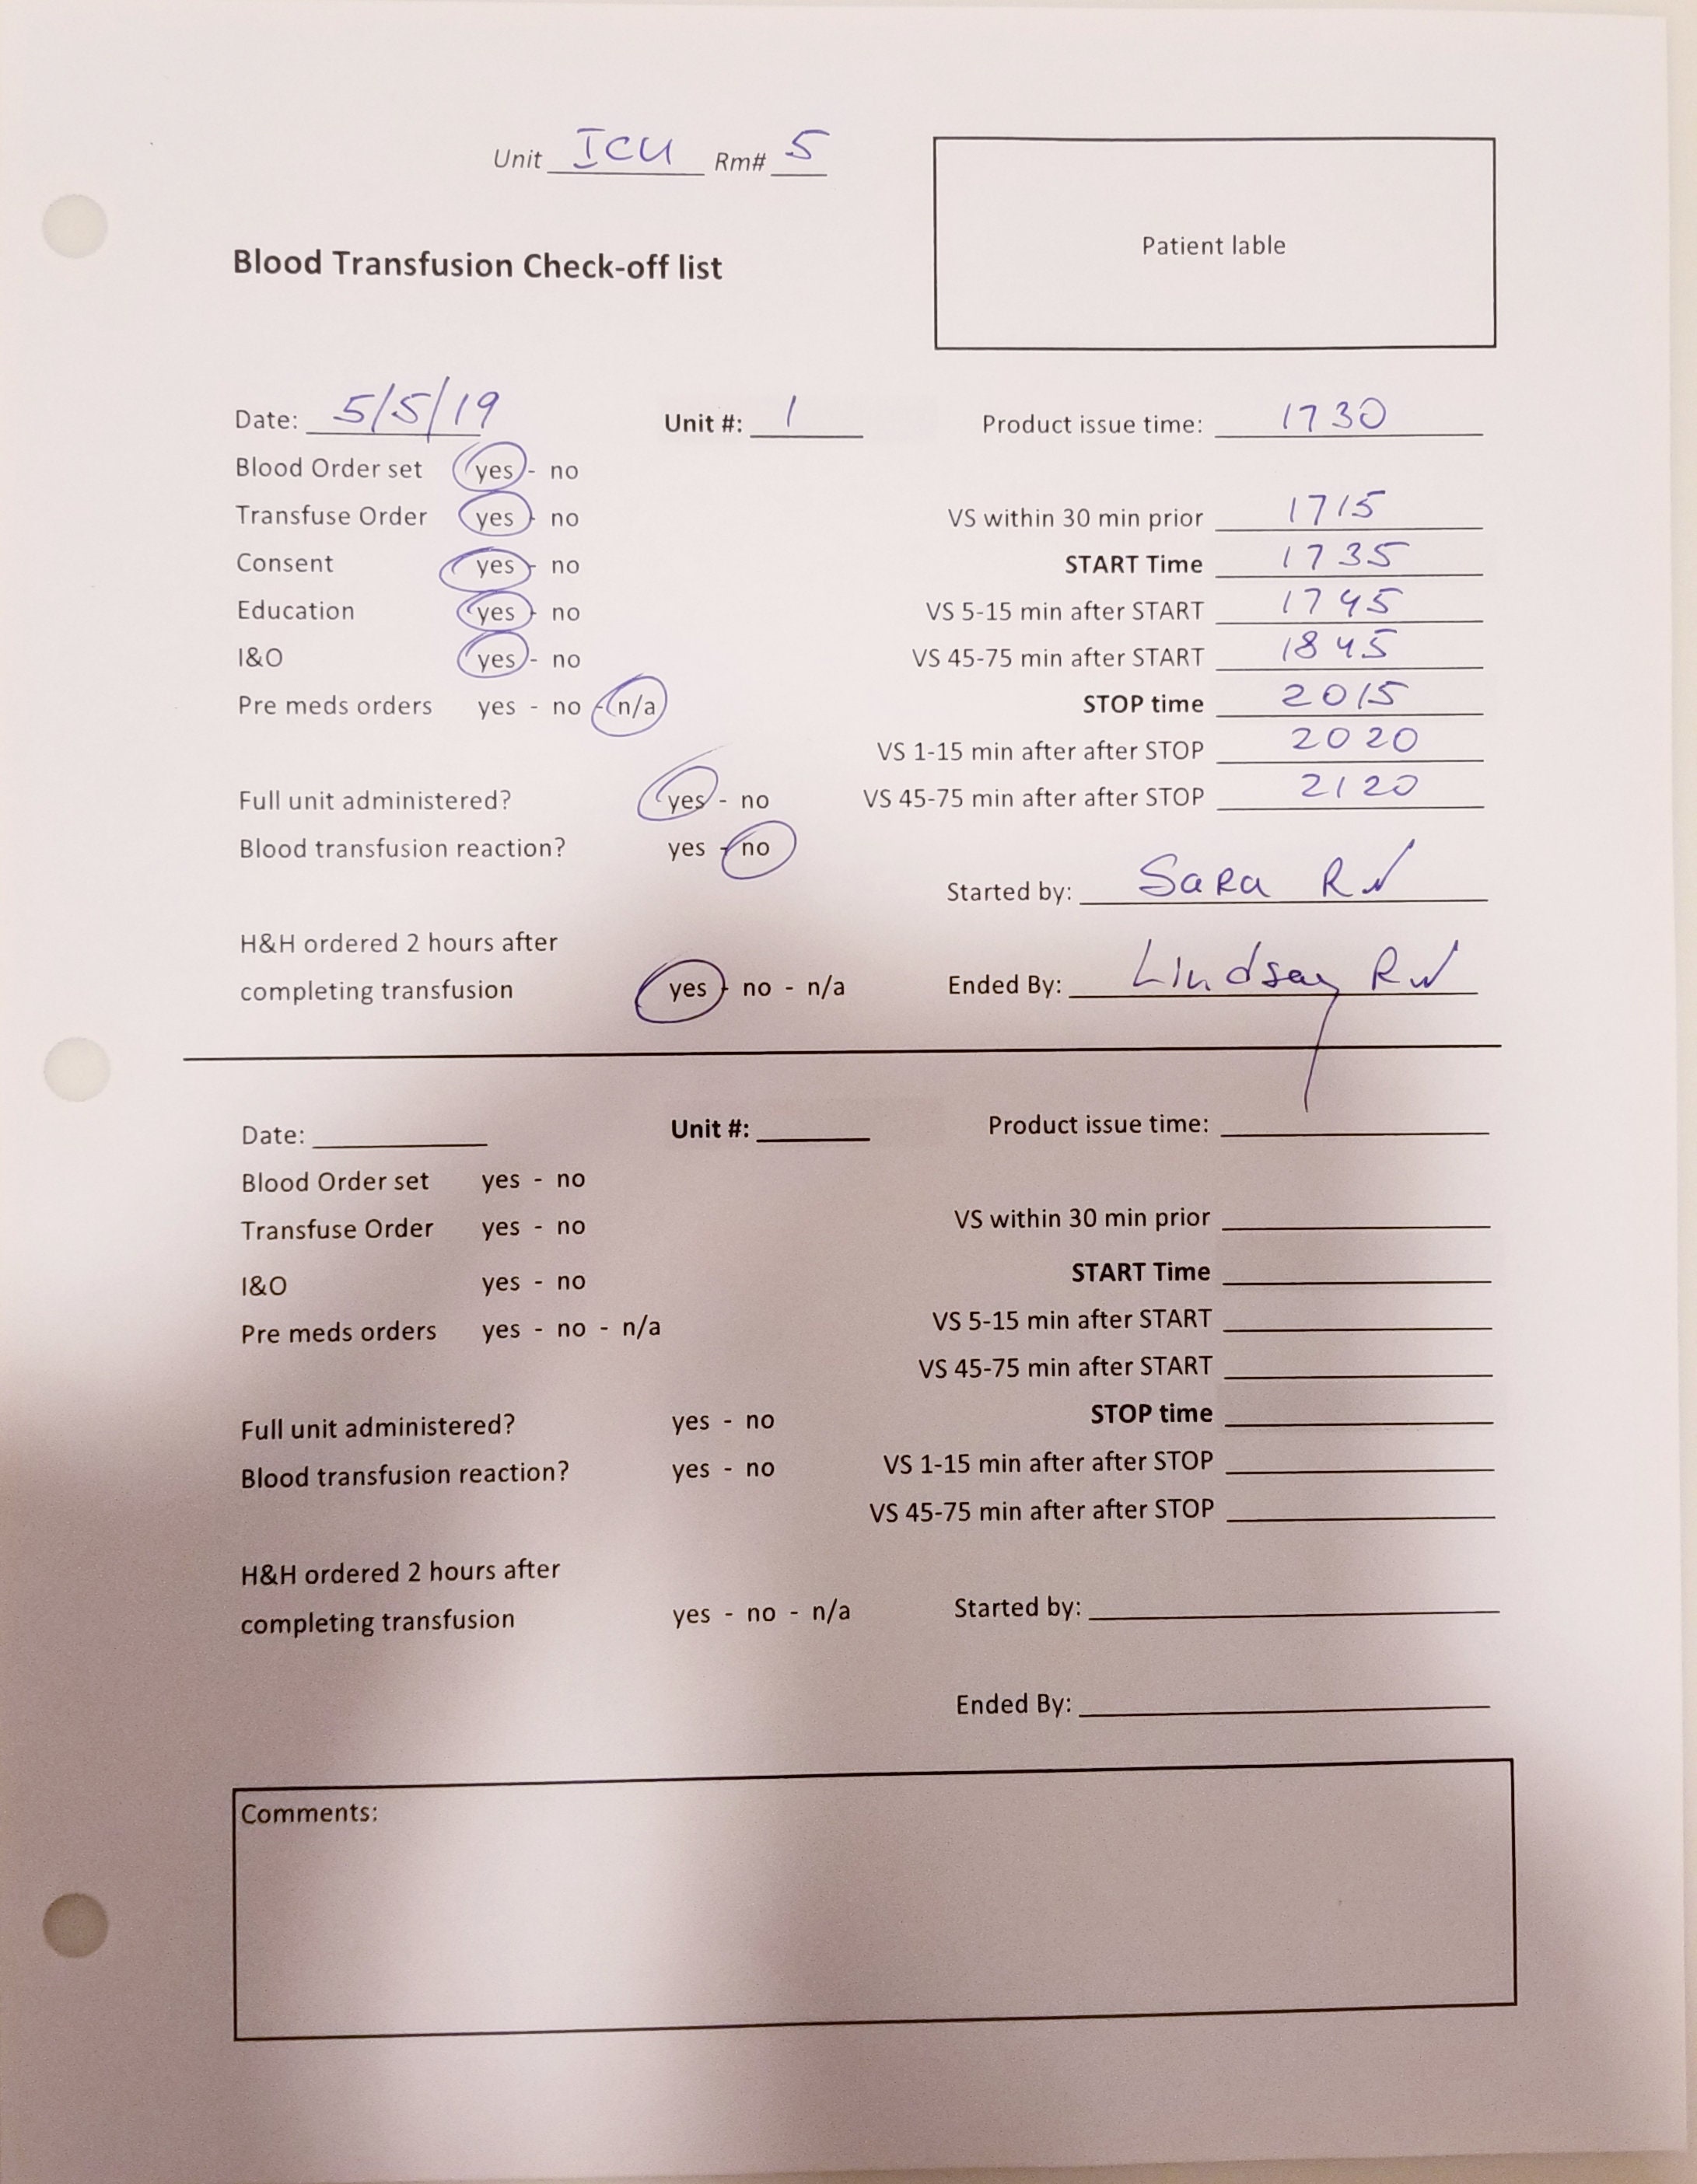 Unit ICU Rm# 5
Patient lable
Blood Transfusion Check-off list
Date: 5/5/19 Unit #: 1 Product issue time: 1730
Blood Order set yes - no
Transfuse Order yes - no VS within 30 min prior 1715
Consent yes - no START Time 1735
Education yes - no VS 5-15 min after START 1745
I&O yes - no VS 45-75 min after START 1845
Pre meds orders yes - no - n/a STOP time 2015
VS 1-15 min after after STOP 2020
Full unit administered? yes - no VS 45-75 min after after STOP 2120
Blood transfusion reaction? yes - no
Started by: Sara RN
H&H ordered 2 hours after
completing transfusion yes - no - n/a Ended By: Lindsay RN
Date: Unit #: Product issue time:
Blood Order set yes - no
Transfuse Order yes - no VS within 30 min prior
I&O yes - no START Time
Pre meds orders yes - no - n/a VS 5-15 min after START
VS 45-75 min after START
Full unit administered? yes - no STOP time
Blood transfusion reaction? yes - no VS 1-15 min after after STOP
VS 45-75 min after after STOP
H&H ordered 2 hours after
completing transfusion yes - no - n/a Started by:
Ended By:
Comments: